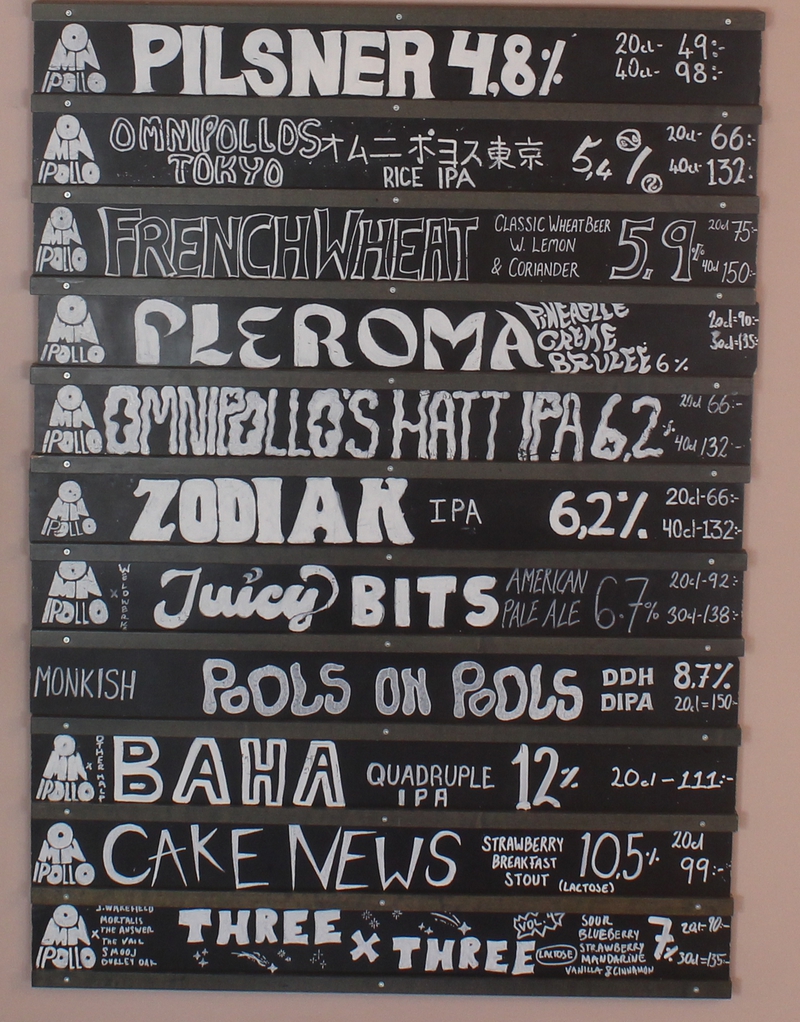 OMNIPOLLO PILSNER 4,8% 20cl- 49:-
40cl- 98:-
OMNIPOLLO OMNIPOLLOS オムニポヨス東京 5,4% 20cl- 66:-
TOKYO RICE IPA 40cl- 132:-
OMNIPOLLO FRENCH WHEAT CLASSIC WHEAT BEER 5,9% 20cl 75:-
W. LEMON
& CORIANDER 40cl 150:-
OMNIPOLLO PLEROMA PINEAPLLE 20cl=90:-
CRÈME 30cl=135:-
BRULEE 6%
OMNIPOLLO OMNIPOLLO'S HATT IPA 6,2% 20cl 66:-
40cl 132:-
OMNIPOLLO ZODIAK IPA 6,2% 20cl-66:-
40cl-132:-
OMNIPOLLO x Juicy BITS AMERICAN 6.7% 20cl-92:-
PALE ALE 30cl-138:-
MONKISH POOLS ON POOLS DDH 8,7%
DIPA 20cl=150-
OMNIPOLLO x OTHER HALF BAHA QUADRUPLE 12% 20cl-111:-
IPA
OMNIPOLLO CAKE NEWS STRAWBERRY 10,5% 20cl
BREAKFAST 99:-
STOUT (LACTOSE)
OMNIPOLLO x J.WAKEFIELD
MORTALIS
THE ANSWER
THE VAIL
SMOOJ
THREE X THREE LACTOSE SOUR 7% 20cl-90:-
BLUEBERRY
STRAWBERRY
MANDARINE 30cl=135:-
VANILLA & CINNAMON